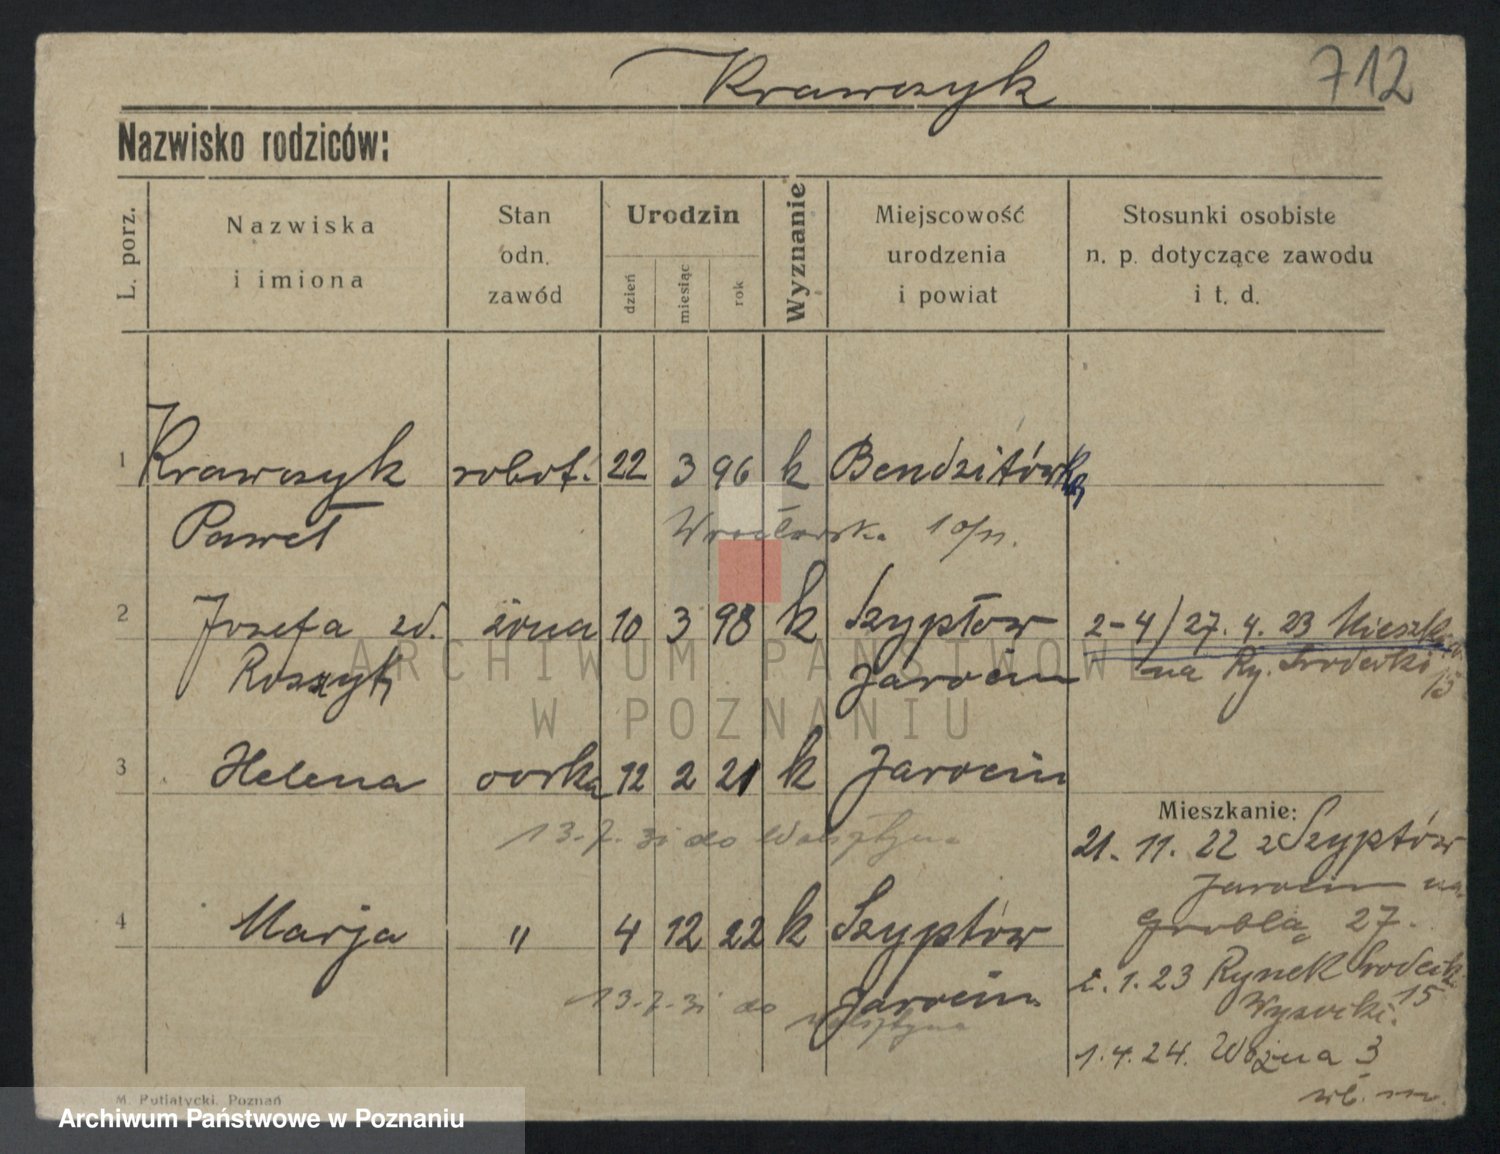 Krawczyk
712
Nazwisko rodziców:
L. porz.
Nazwiska
i imiona
Stan
odn.
zawód
Urodzin
dzień
miesiąc
rok
Wyznanie
Miejscowość
urodzenia
i powiat
Stosunki osobiste
n. p. dotyczące zawodu
i t. d.
1 Krawczyk robot. 22 3 96 k
Paweł
Wrocławska 10/11.
2 Józefa zd. żona 10 3 98 k Szypłow
Jarocin
2-4/27.4.23
na Ry. Srodecki
15
3 Helena corka 12 2 21 k Jarocin
13.7.31 do Wolsztyna
Mieszkanie:
21. 11. 22 z Szypłów
Jarocin na
Groblą 27.
4 Marja " 4 12 22 k Szypłów
Jarocin
13.7.31 do
Wolsztyna
1.23 Rynek Srodecki
15
1.4.24. Woźna 3
M. Putiatycki, Poznań
ARCHIWUM PAŃSTWOWE
W POZNANIU
Archiwum Państwowe w Poznaniu